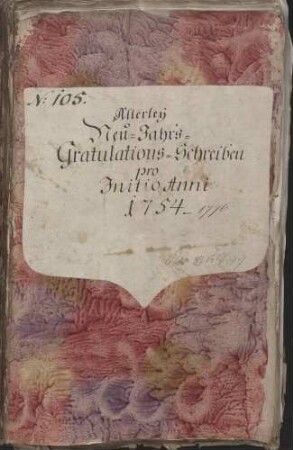 N: 105.
Allerley
Neü=Jahrs=
Gratulations=Schreiben
pro
Initio Anni
1754_ 1776